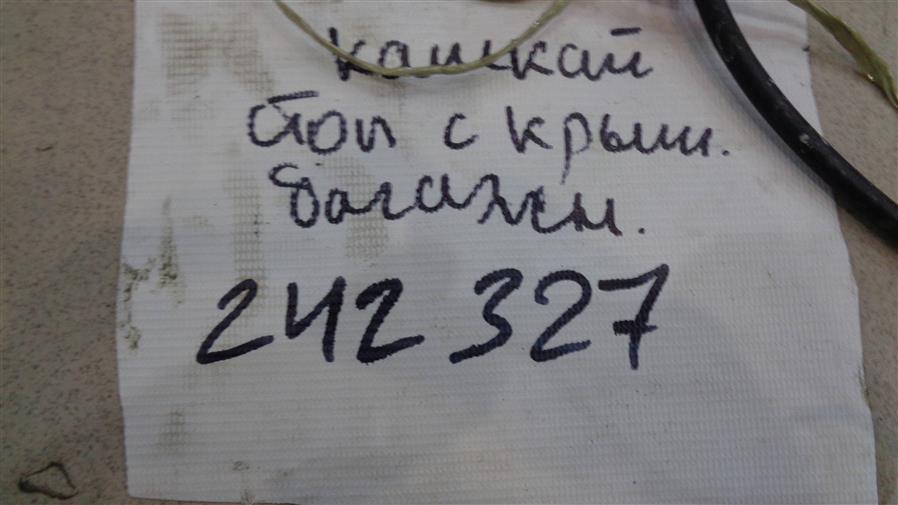 кашкай
Стоп с крыш.
багажн.
242 327